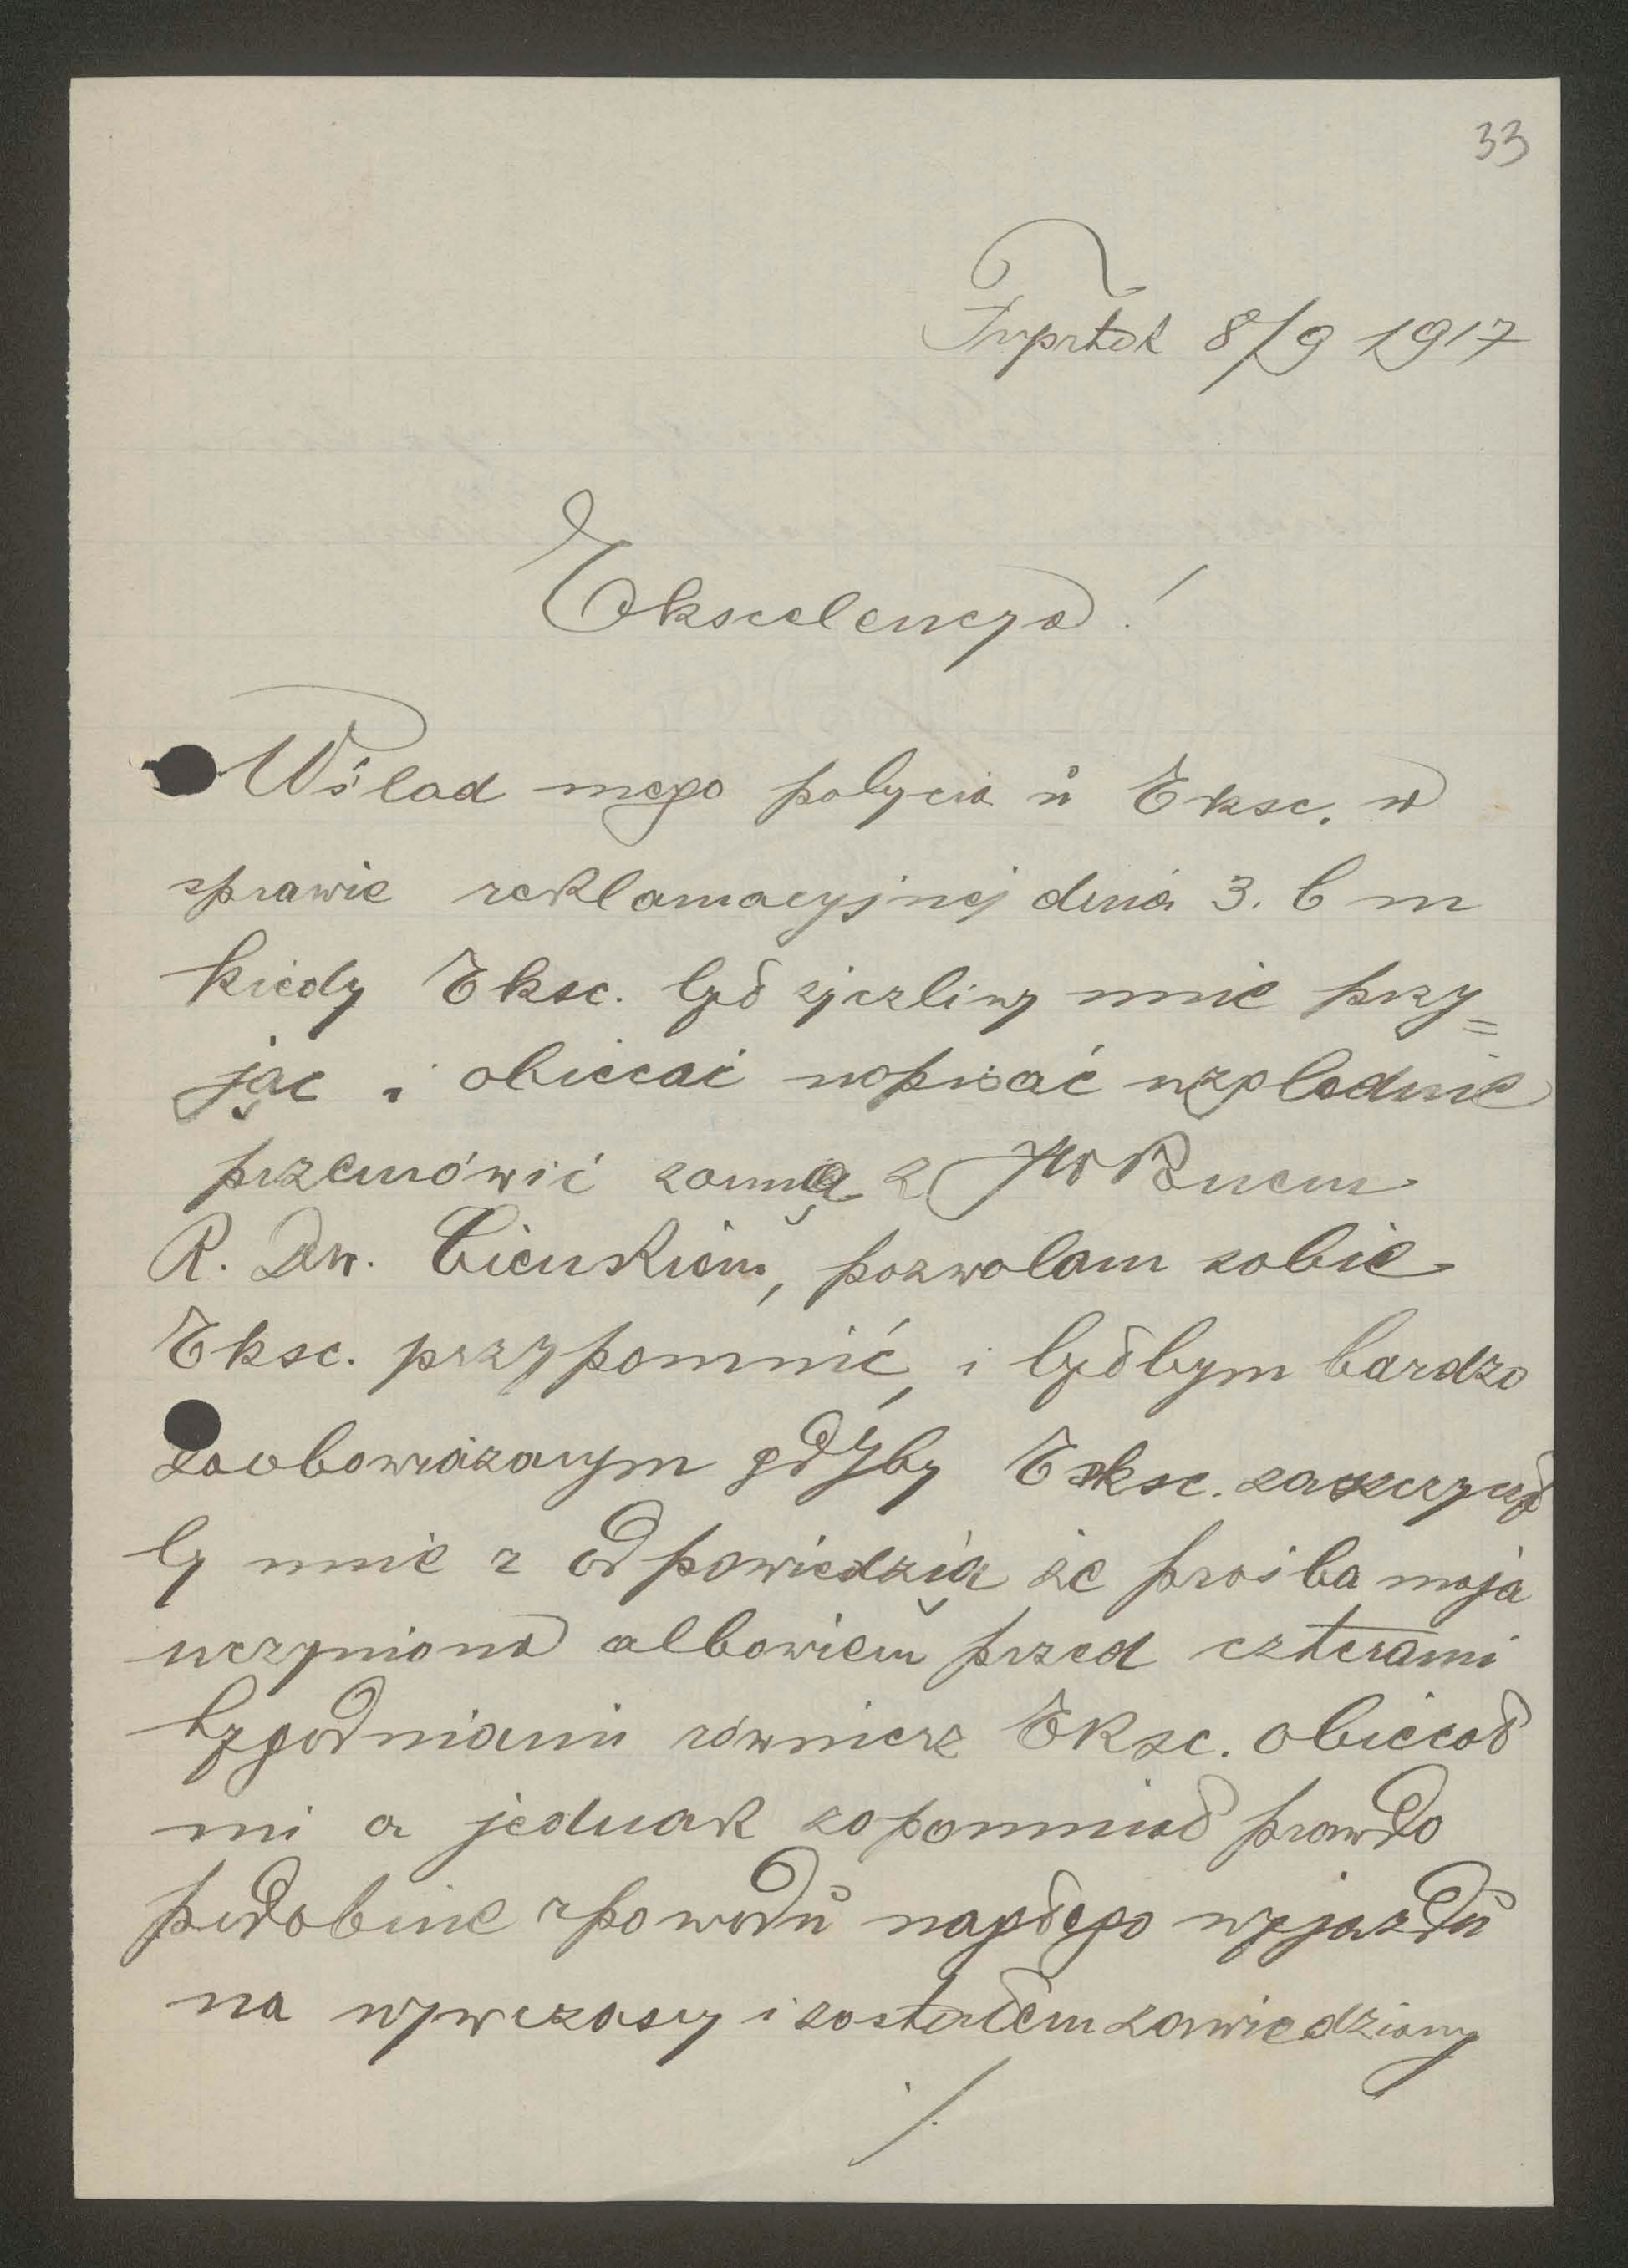 33
Frysztak 8/9 1917
Ekscelencyo!
Wślad mego pobycia u Eksc. w
sprawie reklamacyjnej dnia 3. b m
kiedy Eksc. był życzliwy mnie przy=
jąc i obiecać napisać względnie
przemówić zomną z JWPnem
R. Dw. Cieńskiem, pozwolam sobie
Eksc. przypomnić, i byłbym bardzo
zaobowiązanym gdyby Eksc. zaszczycił
by mnie z odpowiedzią że prośba moja
uczyniona albowiem przed czterami
tygodniami równierz Eksc. obiecał
mi a jednak zopomniał prawdo
podobnie zpowodu nagłego wyjazdu
na wywczasy i zostałem zawiedziony
./.